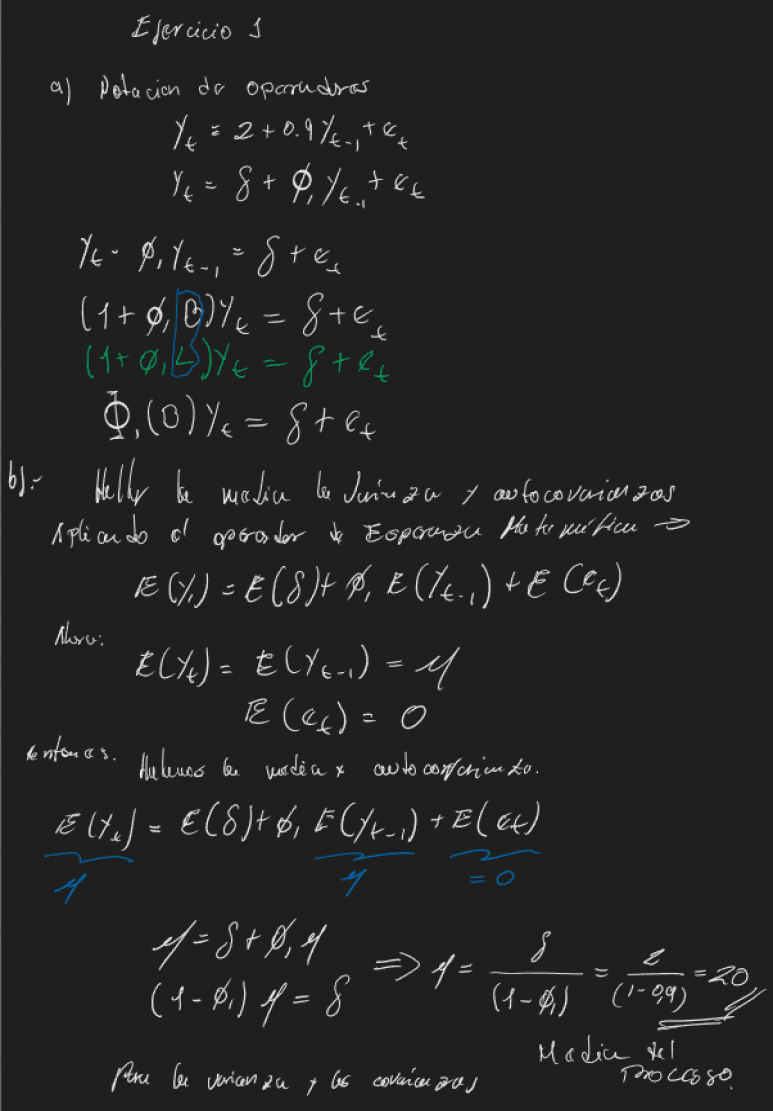 Ejercicio 1
a) Notacion de operadores
Y_t = 2 + 0.9 Y_{t-1} + e_t
Y_t = δ + ϕ_1 Y_{t-1} + e_t
Y_t - ϕ_1 Y_{t-1} = δ + e_t
(1 + ϕ_1 B) Y_t = δ + e_t
(1 + ϕ_1 L) Y_t = δ + e_t
Φ_1 (B) Y_t = δ + e_t
b).- la media la y autocovarianzas
Aplicando el operador de Esperanza Matemática ⇒
E(Y_t) = E(δ) + ϕ_1 E(Y_{t-1}) + E(e_t)
Ahora:
E(Y_t) = E(Y_{t-1}) = μ
E(e_t) = 0
entonces. la media
E(Y_t) = E(δ) + ϕ_1 E(Y_{t-1}) + E(e_t)
μ μ = 0
μ = δ + ϕ_1 μ
(1 - ϕ_1) μ = δ ⇒ μ = δ / (1 - ϕ_1) = 2 / (1 - 0,9) = 20
Media del
proceso.
Para la varianza y las covarianzas